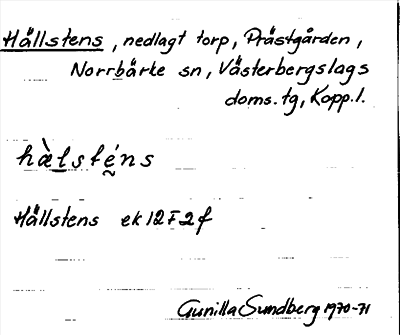 Hällstens, nedlagt torp, Prästgården,
Norrbärke sn, Västerbergslags
doms. tg, Kopp. l.
hὰl̲stḛ́ns
Hällstens ek 12F2f
Gunilla Sundberg 1970-71